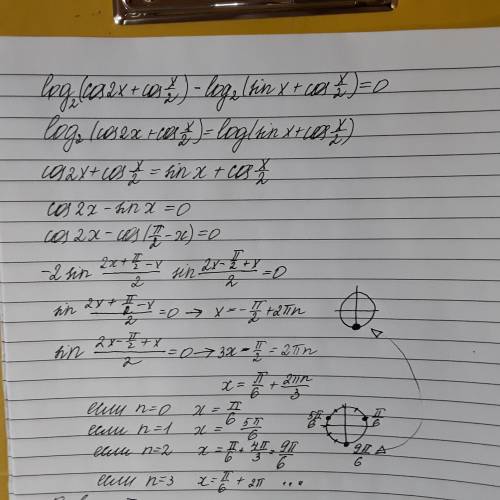 log₂(cos2x+cos x/2)-log₂(sin x+cos x/2)=0
log₂(cos2x+cos x/2)=log(sin x+cos x/2)
cos2x+cos x/2=sin x+cos x/2
cos2x-sin x=0
cos 2x-cos(π/2-x)=0
-2 sin (2x+π/2-x)/2 sin (2x-π/2+x)/2=0
sin (2x+π/2-x)/2=0 → x=-π/2+2πn
sin (2x-π/2+x)/2=0 → 3x-π/2=2πn
x=π/6+2πn/3
если n=0 x=π/6
если n=1 x=5π/6
если n=2 x=π/6+4π/3=9π/6
если n=3 x=π/6+2π ...
5π/6 π/6
9π/6